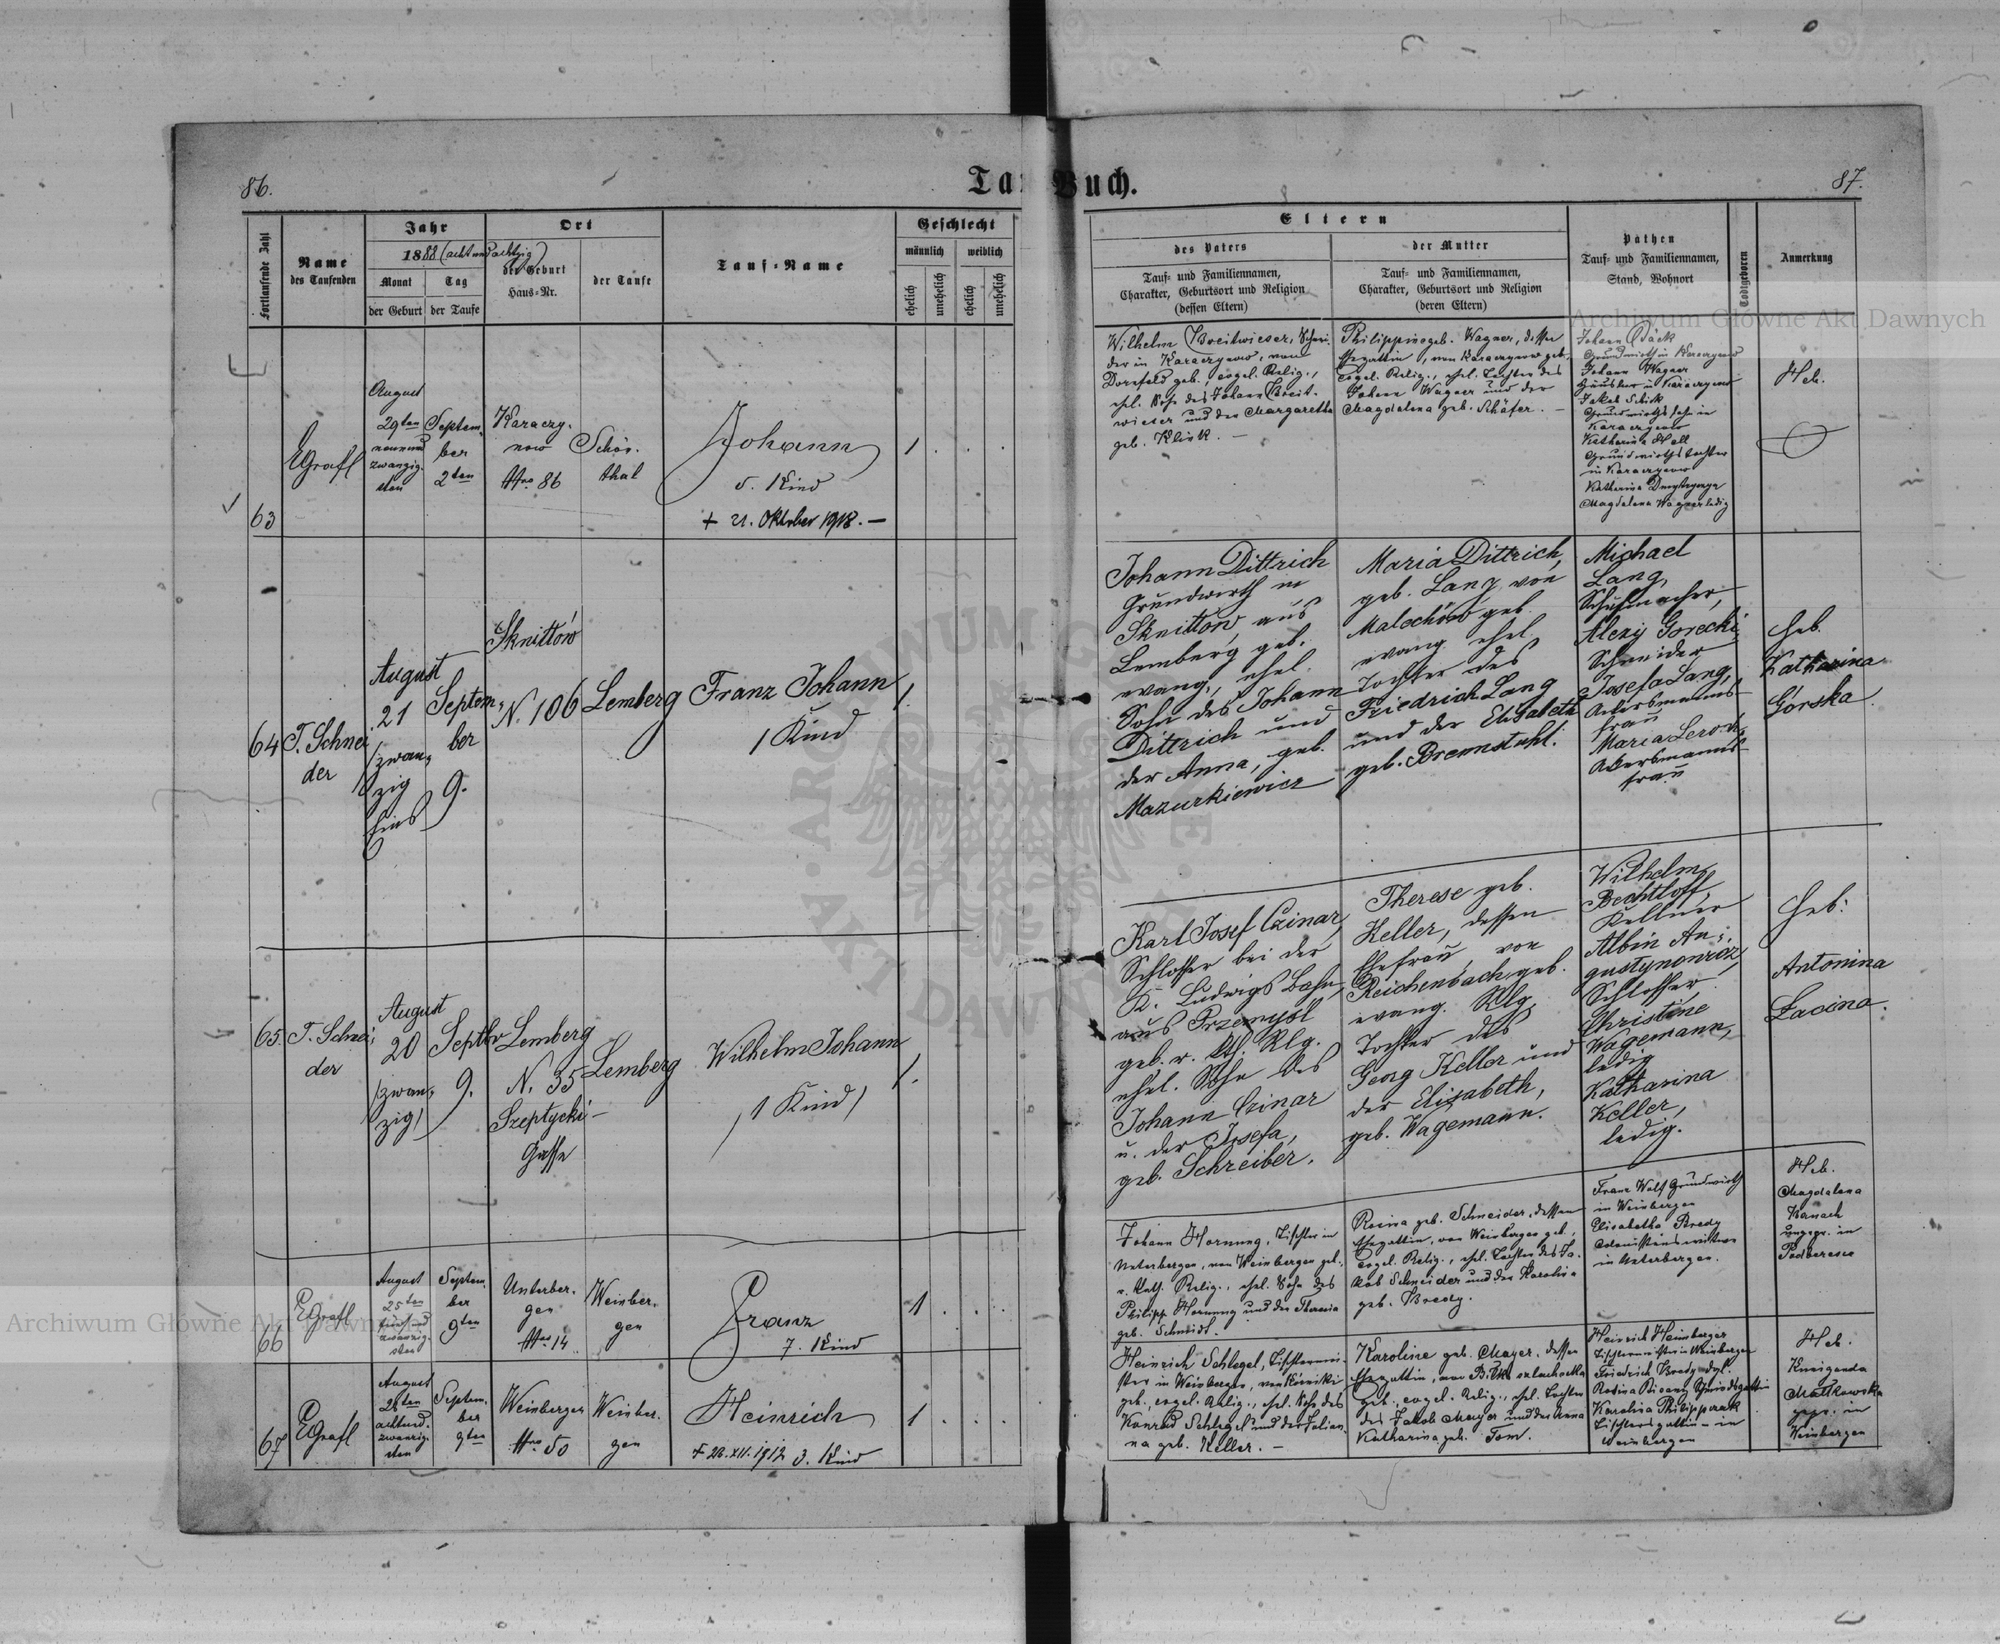 86.
Tauf-Buch.
87.
Fortlaufende Zahl
Name
des Taufenden
Jahr
1888 (achtundachtzig)
Monat
Tag
der Geburt
der Taufe
Ort
der Geburt
Haus-Nr.
der Taufe
Tauf-Name
Geschlecht
männlich
weiblich
ehelich
unehelich
ehelich
unehelich
Eltern
des Vaters
Tauf- und Familiennamen,
Charakter, Geburtsort und Religion
(dessen Eltern)
der Mutter
Tauf- und Familiennamen,
Charakter, Geburtsort und Religion
(deren Eltern)
Pathen
Tauf- und Familiennamen,
Stand, Wohnort
Todtgeboren
Anmerkung
63
EGrafl
August
29ten
neunund
zwanzig-
sten
Septem-
ber
2ten
Karaczy-
now
Nro 86
Schön-
thal
Johann
5. Kind
+ 21. Oktober 1918. —
1
Wilhelm Breitwieser, Schnei-
der in Karaczynow, von
Dornfeld geb., evgel. Relig.,
ehel. Sohn des Johann Breit-
wieser und der Margaretha
geb. Klink. —
Philippine geb. Wagner, dessen
Ehegattin, von Karaczynow geb.,
evgel. Relig., ehel. Tochter des
Johann Wagner und der
Magdalena geb. Schäfer. —
Johann Däck
Grundwirth in Karaczynow
Johann Wagner
Häusler in Karaczynow
Jakob Schick
Grundwirths Sohn in
Karaczynow
Katharina Hall
Grundwirths Tochter
in Karaczynow
Katharina
Magdalena Wagner ledig
Heb.
64
T. Schnei
der
August
21
(zwan-
zig
Eins)
Septem-
ber
9.
Sknittów
N. 106
Lemberg
Franz Johann
1 Kind
1.
Johann Dittrich
Grundwirth in
Sknittów aus
Lemberg geb.
evang., ehel.
Sohn des Johann
Dittrich und
der Anna, geb.
Mazurkiewicz
Maria Dittrich,
geb. Lang, von
Malechów geb.
evang. ehel.
Tochter des
Friedrich Lang
und der Elisabeth
geb. Brennstuhl.
Michael
Lang,
Schuhmacher,
Alexy Gorecki,
Schneider
Josefa Lang,
Ackersmanns-
frau
Maria
Ackersmanns-
frau
Heb.
Katharina
Górska
65.
T. Schnei-
der
August
20
(zwan-
zig)
Septbr
9.
Lemberg
N. 35
Szeptycki-
Gasse
Lemberg
Wilhelm Johann
/1 Kind/
1.
Karl Josef Czinar,
Schlosser bei der
K. Ludwigs Bahn,
aus Przemysl
geb. r. kth. Rlg.
ehel. Sohn des
Johann Czinar
u. der Josefa,
geb. Schreiber.
Therese geb.
Keller, dessen
Ehefrau, von
Reichenbach geb.
evang. Rlg.
Tochter des
Georg Keller und
der Elisabeth,
geb. Wagemann.
Wilhelm
Bechtloff,
Kellner
Albin Au-
gustynowicz,
Schlosser
Christine
Wagemann,
ledig
Katharina
Keller,
ledig.
Heb:
Antonina
Lacina.
66
EGrafl
August
25ten
fünfund
zwanzig-
sten
Septem-
ber
9ten
Unterber-
gen
Nro 14
Weinber-
gen
Franz
7. Kind
1
Johann Hornung, Tischler in
Unterbergen, von Weinbergen geb.,
r. kath. Relig., ehel. Sohn des
Philipp Hornung und der Theresia
geb. Schmidt.
Rosina geb. Schneider, dessen
Ehegattin, von Weinbergen geb.,
evgel. Relig., ehel. Tochter des Ja-
kob Schneider und der Karolina
geb. Bredy.
Franz Wolf Grundwirth
in Weinbergen
Elisabetha Bredy
Colonistenswittwe
in Unterbergen.
Heb.
Magdalena
Kornach
ungepr. in
Podberesce
67
EGrafl
August
28ten
achtund-
zwanzig-
sten
Septem-
ber
9ten
Weinbergen
Nro 50
Weinber-
gen
Heinrich
+ 26.XII.1912 3. Kind
1
Heinrich Schlegel, Tischlermei-
ster in Weinbergen, von
geb., evgel. Relig., ehel. Sohn des
Konrad Schlegel und der Julian-
na geb. Keller. —
Karoline geb. Mayer, dessen
Ehegattin, von Bilka szlachecka
geb., evgel. Relig., ehel. Tochter
des Jakob Mayer und der Anna
Katharina geb. Tom.
Heinrich Heimberger
Tischlermeister in Weinbergen
Friedrich Bredy dgl.
Rosina
Karolina
Tischlersgattin — in
Weinbergen
Heb.
Kunigunda
Malikowska
gepr. in
Weinbergen
Archiwum Główne Akt Dawnych
Archiwum Główne Akt Dawnych
ARCHIWUM GŁÓWNE AKT DAWNYCH